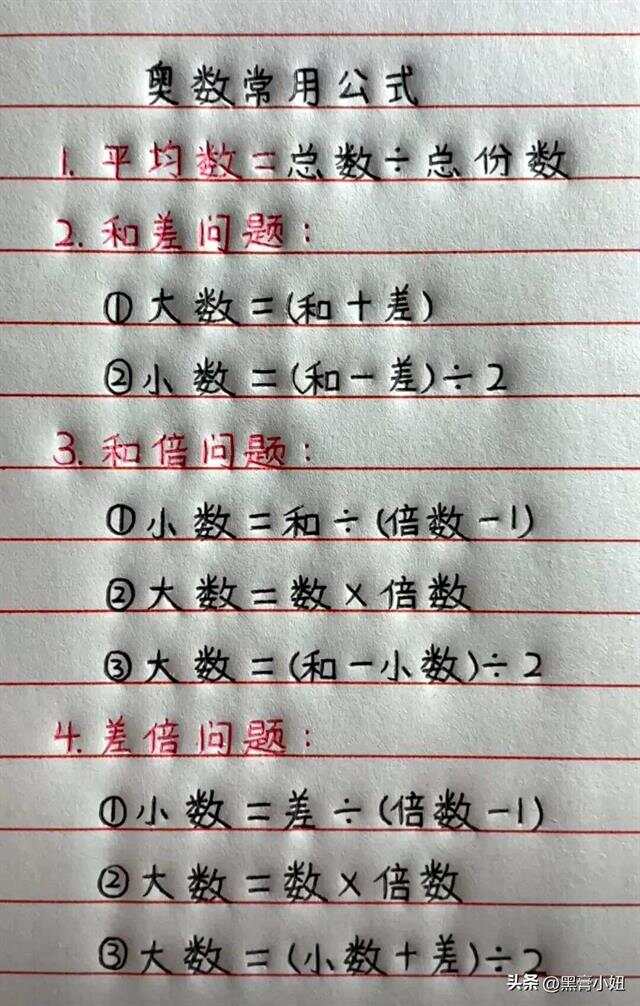 奥数常用公式
1. 平均数=总数÷总份数
2. 和差问题:
①大数=(和+差)
②小数=(和-差)÷2
3. 和倍问题:
①小数=和÷(倍数-1)
②大数=数×倍数
③大数=(和-小数)÷2
4. 差倍问题:
①小数=差÷(倍数-1)
②大数=数×倍数
③大数=(小数+差)÷2
头条 @黑膏小妞